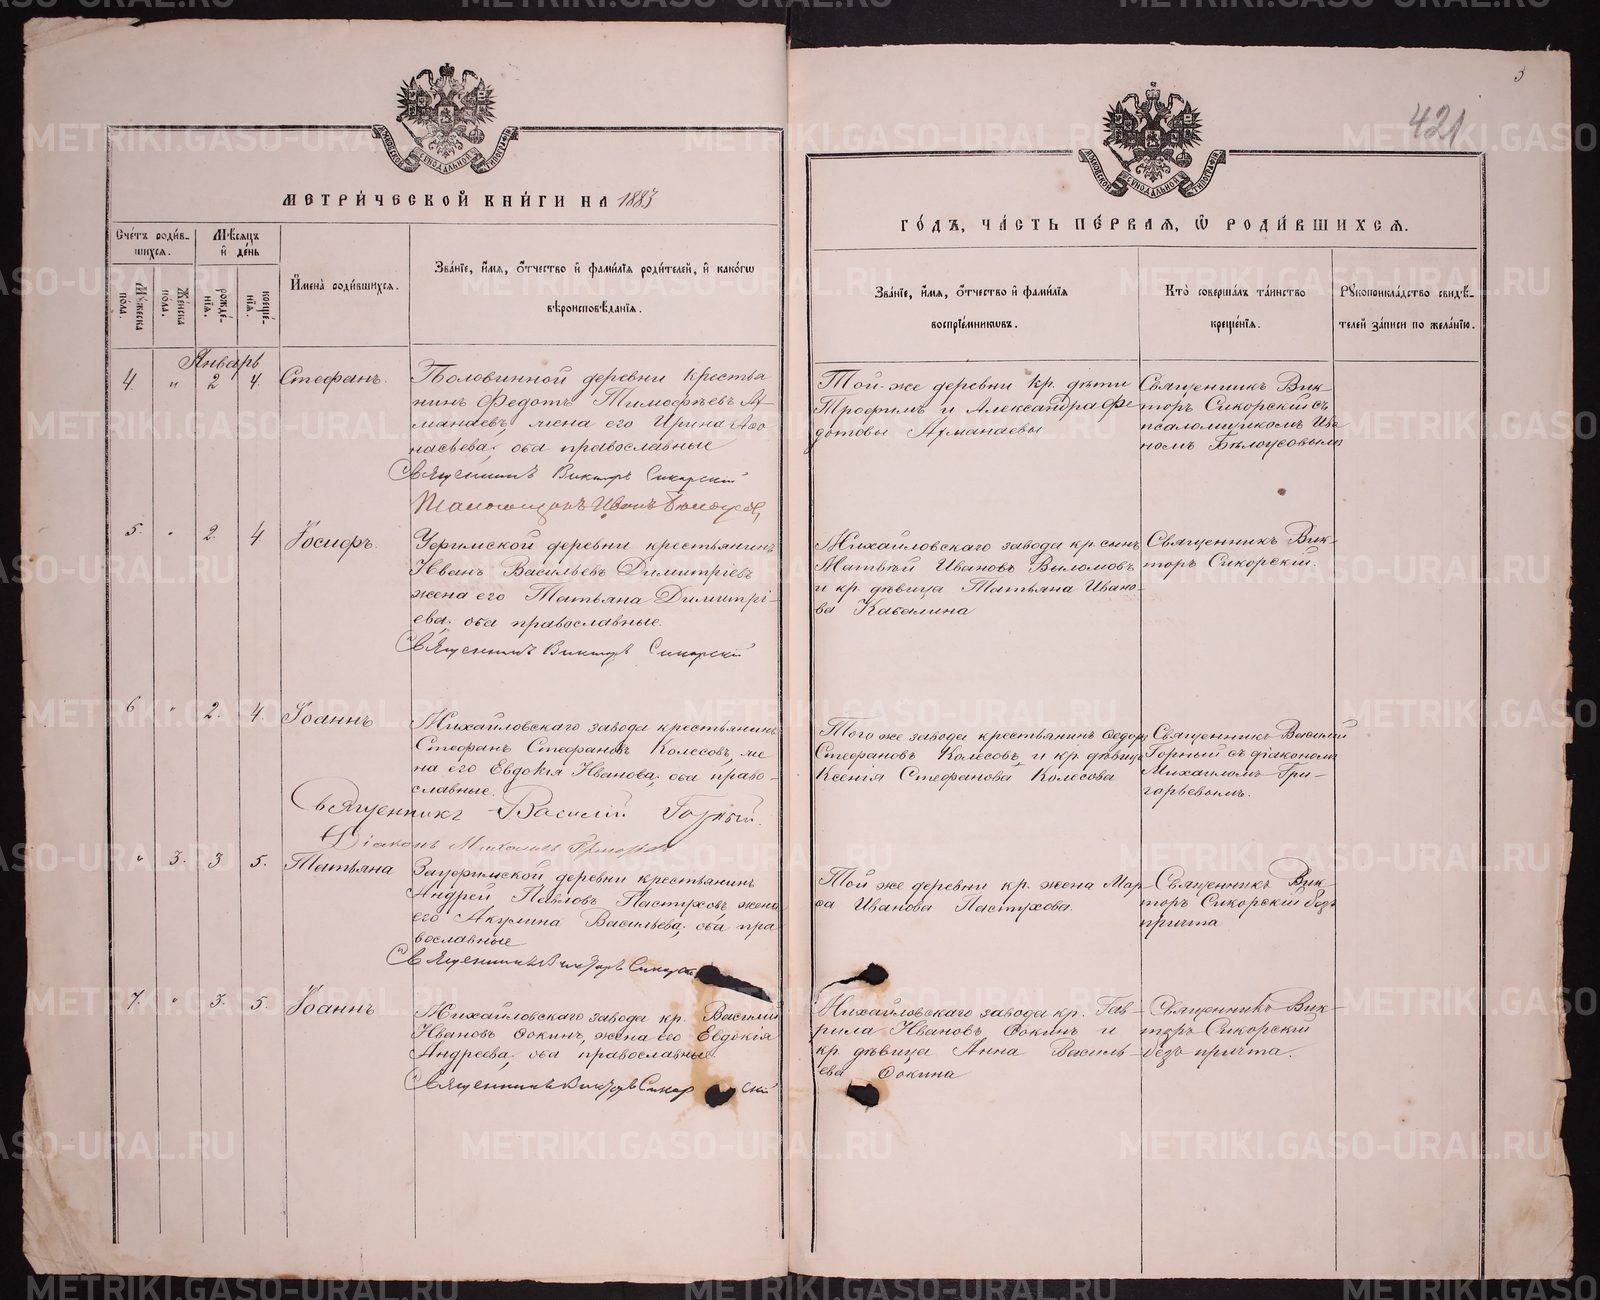 МЕТРИ́ЧЕСКОЙ КНИ́ГИ НА 1883
Сче́тъ роди́в-
шихся.
Мѣ́сяцъ
и҆ де́нь
И҆мена̀ роди́вшихся.
Зва́нїе, и҆́мѧ, ѻ҆́тчество и҆ фами́лїѧ роди́телей, и҆ како́гѡ
вѣроисповѣ́данїѧ.
Мꙋ́жеска
пола.
Же́нска
пола.
рожде́-
нїѧ.
креще́-
нїѧ.
Январь
4. " 2 4. Стефанъ.
Половинной деревни крестья
нинъ Федотъ Тимофѣевъ Ат-
манаевъ, жена его Ирина Афо
насьева; оба православные
Священникъ Викторъ Сикорскій
Псаломщикъ Иванъ Бѣлоусовъ
5. " 2. 4 Іосифъ.
Уфимской деревни крестьянинъ
Иванъ Васильевъ Димитріевъ
жена его Татьяна Димитрі-
ева; оба православные.
Священникъ Викторъ Сикорскій
6 " 2. 4. Іоаннъ
Михайловскаго завода крестьянинъ
Стефанъ Стефановъ Колесовъ, же
на его Евдокія Иванова; оба право-
славные.
Священникъ Василій Горный.
Діаконъ Михаилъ Григорьевъ
" 3. 3 5. Татьяна
Зауфимской деревни крестьянинъ
Андрей Павловъ Пастуховъ, жена
его Акулина Васильева; оба пра
вославные
Священникъ Викторъ Сикорскій
7. " 3. 5. Іоаннъ
Михайловскаго завода кр. Василий
Ивановъ Ѳокинъ, жена его Евдокія
Андреева; оба православные.
Священникъ Викторъ Сикорскій
421
ГО́ДЪ, ЧА́СТЬ ПЕ́РВАѦ, Ѡ҆ РОДИ́ВШИХСѦ.
Зва́нїе, и҆́мѧ, ѻ҆́тчество и҆ фами́лїѧ
воспрїе́мникѡвъ.
Кто̀ соверша́лъ та́инство
креще́нїѧ.
Рꙋкоприкла́дство свидѣ́-
телей за́писи по жела́нїю.
Той-же деревни кр. дѣти
Трофимъ и Александра Фе
дотовы Атманаевы
Священникъ Вик-
торъ Сикорскій съ
псаломщикомъ Ива
номъ Бѣлоусовымъ
Михайловскаго завода кр. сынъ
Матвѣй Ивановъ Выломовъ
и кр. дѣвица Татьяна Ивано-
ва Кавалина
Священникъ Вик-
торъ Сикорскій.
Того же завода крестьянинъ Ѳедоръ
Стефановъ Колесовъ и кр. дѣвица
Ксенія Стефанова Колесова
Священникъ Василий
Горный съ діакономъ
Михаиломъ Гри-
горьевымъ.
Той же деревни кр. жена Мар
ѳа Иванова Пастухова.
Священникъ Вик-
торъ Сикорскій безъ
причта
Михайловскаго завода кр. Гав-
рила Ивановъ Ѳокинъ и
кр. дѣвица Анна Василь-
ева Ѳокина
Священникъ Вик-
торъ Сикорскій
безъ причта.
METRIKI.GASO-URAL.RU